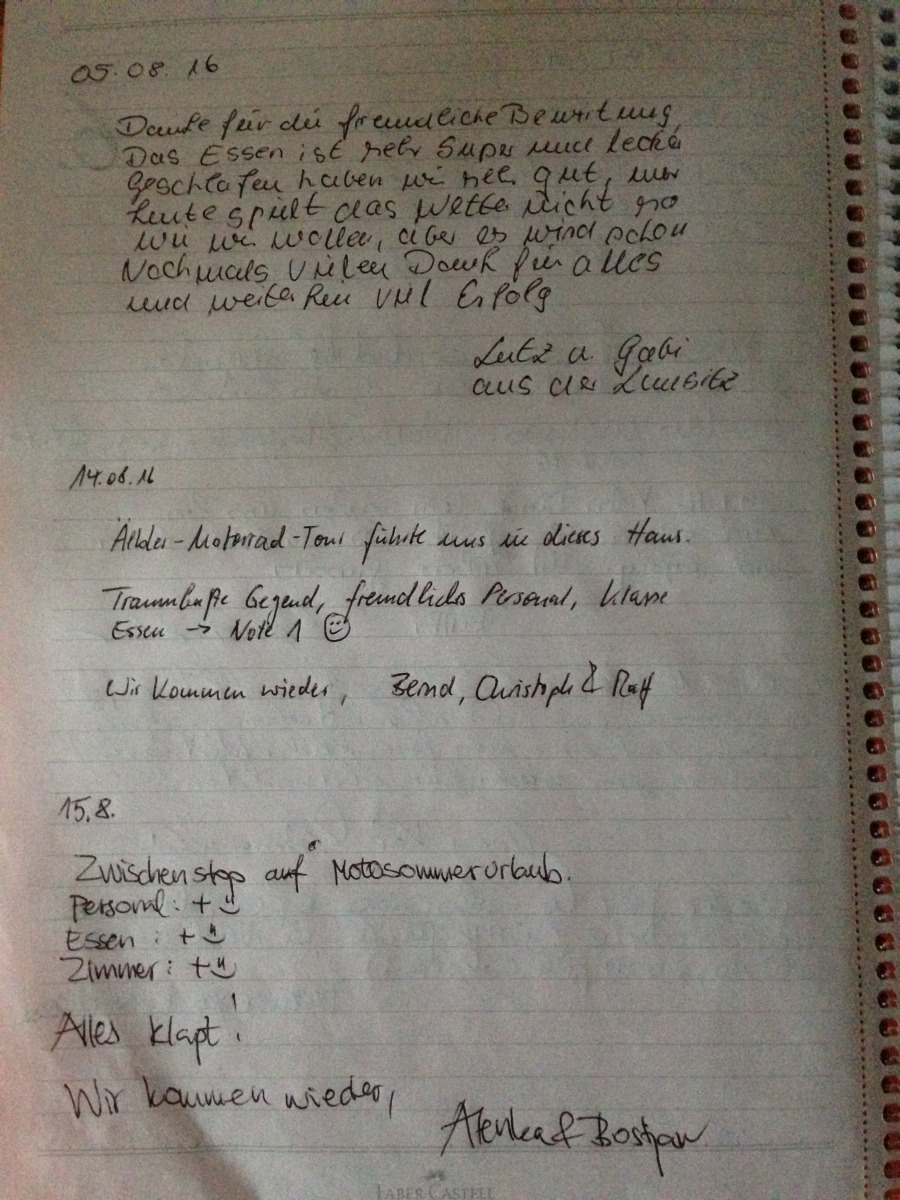 05.08.16
Danke für die freundliche Bewirtung
Das Essen ist sehr Super und lecker
geschlafen haben wir sehr gut, nur
heute spielt das Wetter nicht so
wie wir wollen, aber es wird schon
Nochmals vielen Dank für alles
und weiterhin viel Erfolg
Lutz u. Gabi
aus der Lausitz
14.08.16
-Motorrad-Tour führte uns in dieses Haus.
Traumhafte Gegend, freundliches Personal, klasse
Essen → Note 1 ☺
Wir kommen wieder, Bernd, Christoph & Ralf
15.8.
Zwischenstop auf Motosommerurlaub.
Personal: + ü
Essen : + ü
Zimmer: + ü
Alles klapt!
Wir kommen wieder,
Alenka & Bostjan
FABER CASTELL